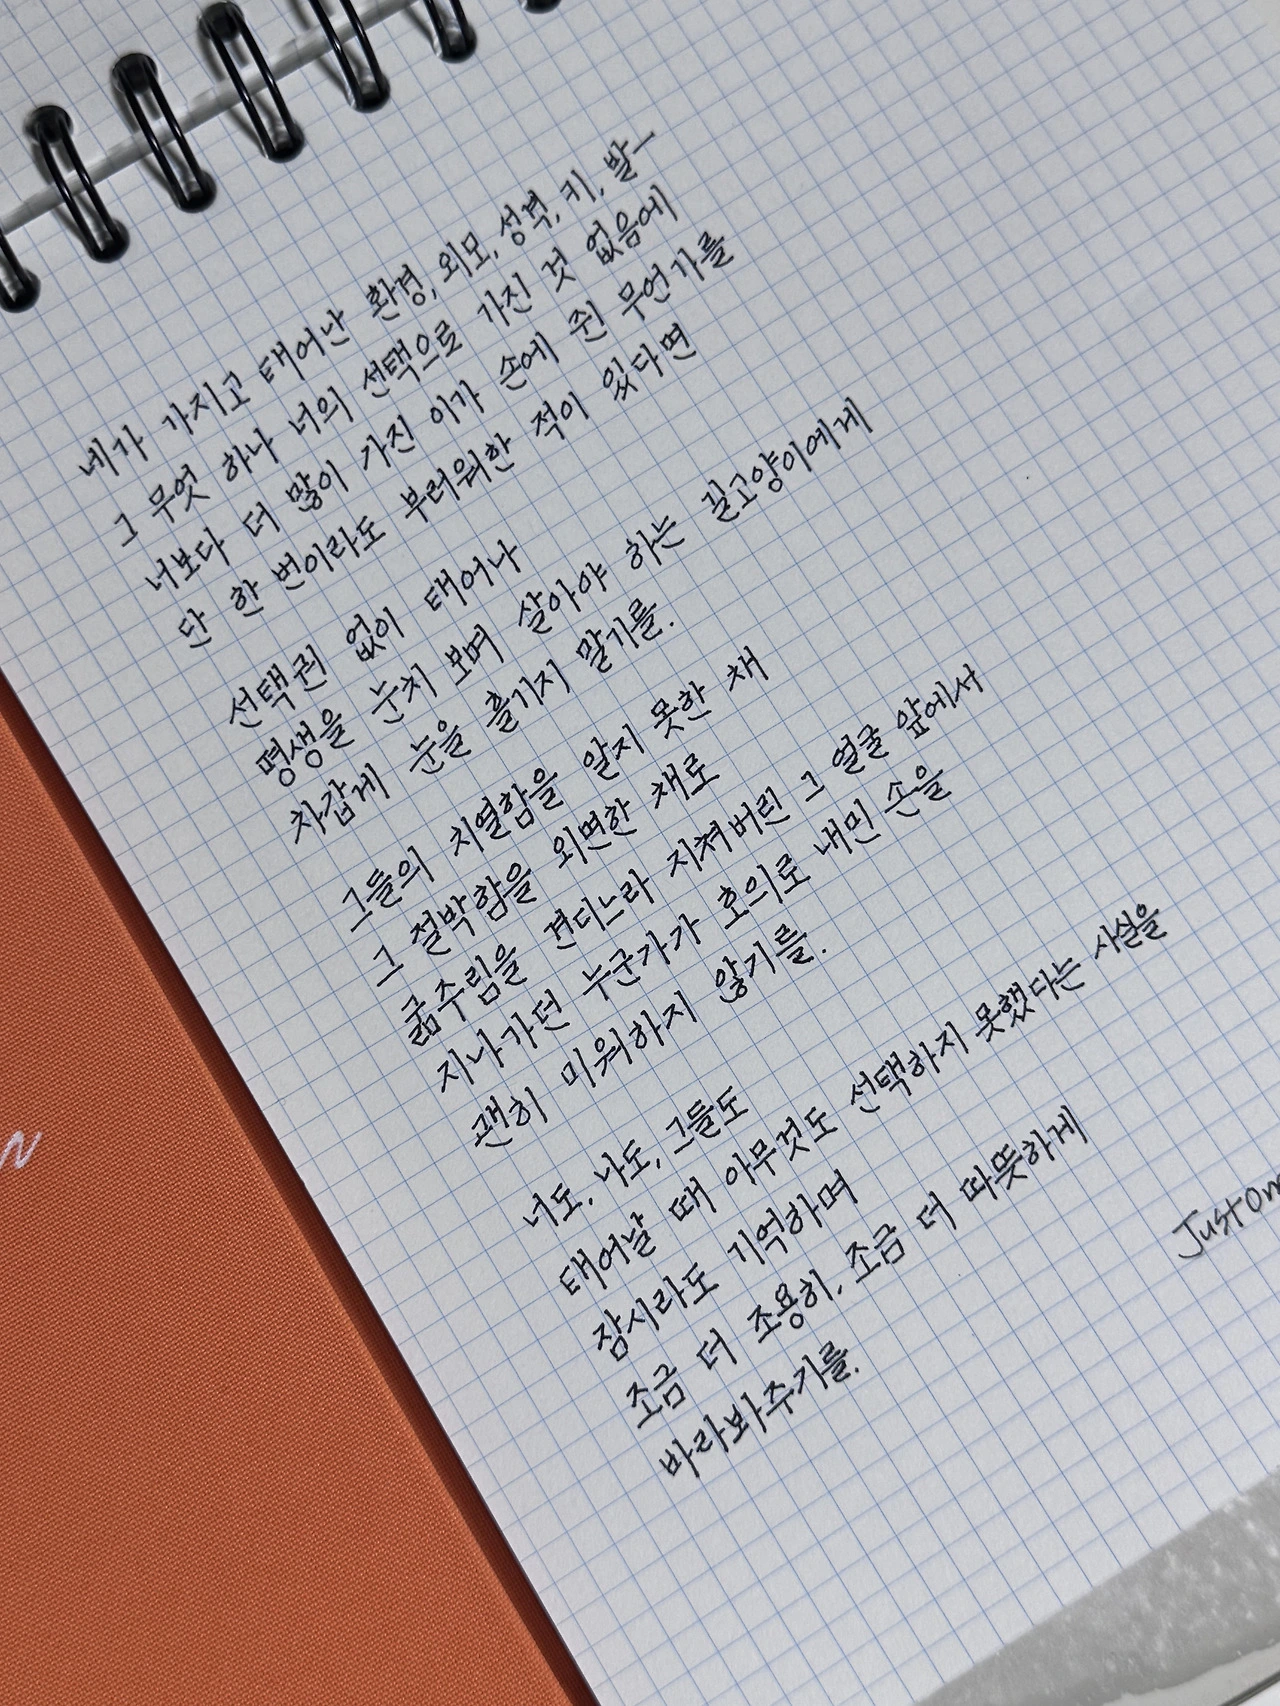 네가 가지고 태어난 환경, 외모, 성격, 키, 발—
그 무엇 하나 너의 선택으로 가진 것 없음에
너보다 더 많이 가진 이가 손에 쥔 무언가를
단 한 번이라도 부러워한 적이 있다면
선택권 없이 태어나
평생을 눈치 보며 살아야 하는 길고양이에게
차갑게 눈을 흘기지 말기를.
그들의 치열함을 알지 못한 채
그 절박함을 외면한 채로
굶주림을 견디느라 지쳐버린 그 얼굴 앞에서
지나가던 누군가가 호의로 내민 손을
괜히 미워하지 않기를.
너도, 나도, 그들도
태어날 때 아무것도 선택하지 못했다는 사실을
잠시라도 기억하며
조금 더 조용히, 조금 더 따뜻하게
바라봐주기를.